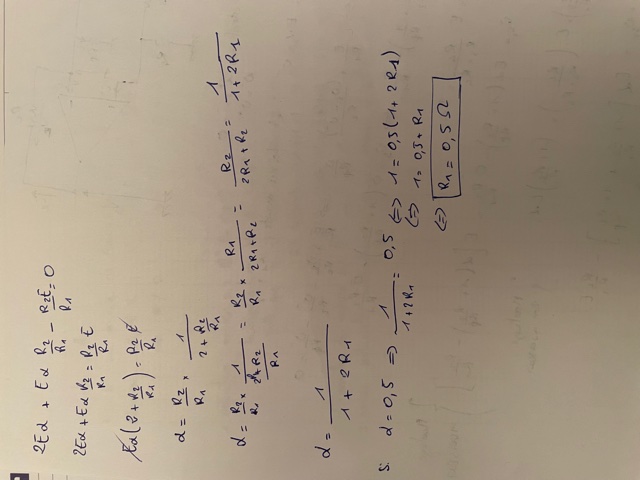 2Eα + Eα R2/R1 - R2E/R1 = 0
2Eα + Eα R2/R1 = R2/R1 E
Eα(2 + R2/R1) = R2/R1 E
α = R2/R1 × 1/(2 + R2/R1)
α = R2/R1 × 1/((2R1 + R2)/R1) = R2/R1 × R1/(2R1 + R2) = R2/(2R1 + R2) = 1/(1 + 2R1)
α = 1/(1 + 2R1)
α = 0,5 ⇒ 1/(1 + 2R1) = 0,5 ⇔ 1 = 0,5(1 + 2R1)
⇔ 1 = 0,5 + R1
⇔ R1 = 0,5 Ω